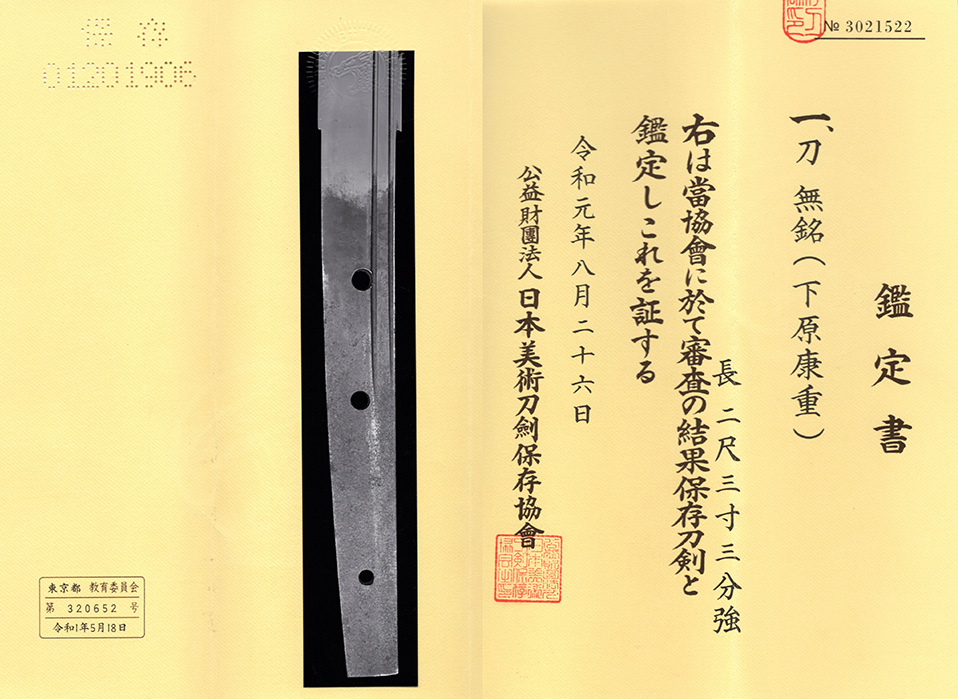 № 3021522
鑑定書
一、刀 無銘(下原康重)
長 二尺三寸三分強
右は當協會に於て審査の結果保存刀剣と
鑑定しこれを証する
令和元年八月二十六日
公益財團法人 日本美術刀劍保存協會
保存
01201906
東京都 教育委員会
第 320652 号
令和1年5月18日